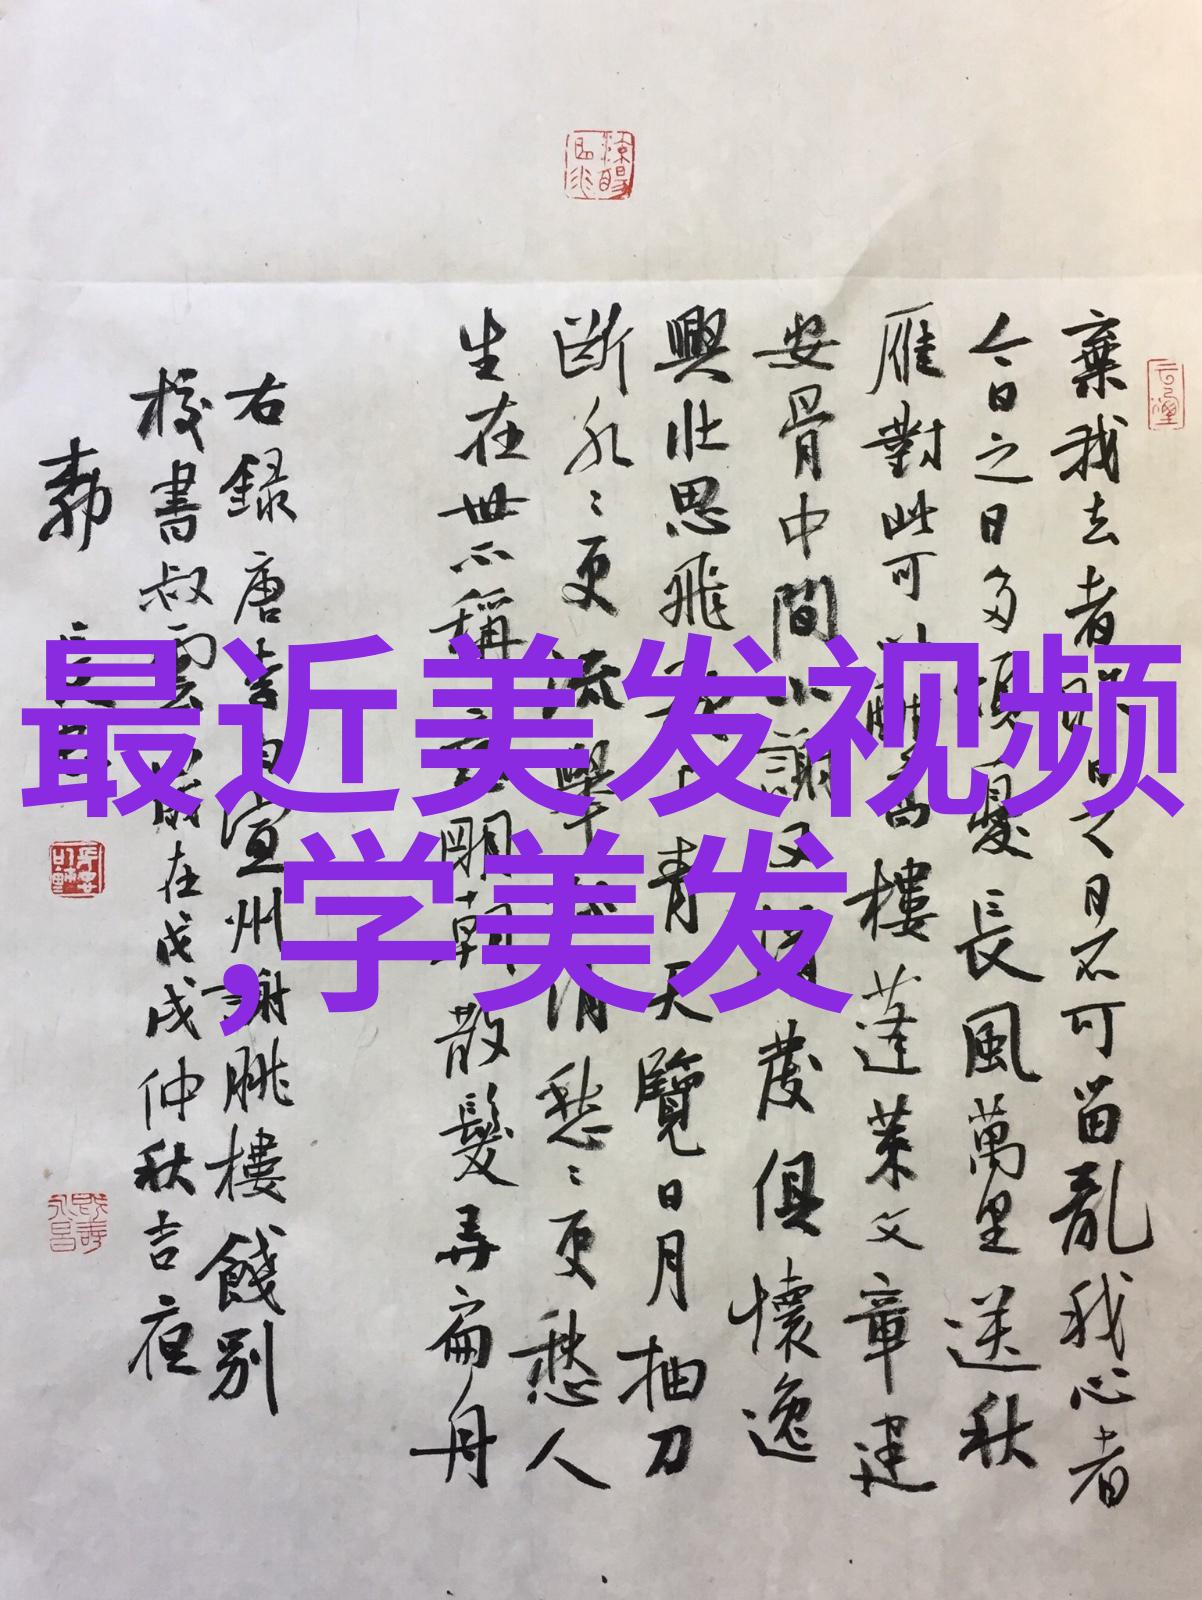 最近美发视频
,学美发
棄我去者昨日之日不可留亂我心者
今日之日多煩憂長風萬里送秋
雁對此可以酣高樓蓬萊文章建
安骨中間小謝又清發俱懷逸
興壯思飛欲上青天覽日月抽刀
斷水〻更流舉杯消愁〻更愁人
生在世不稱意明朝散髮弄扁舟
右錄唐李白宣州謝朓樓餞別
校書叔雲歲在戊戌仲秋吉夜